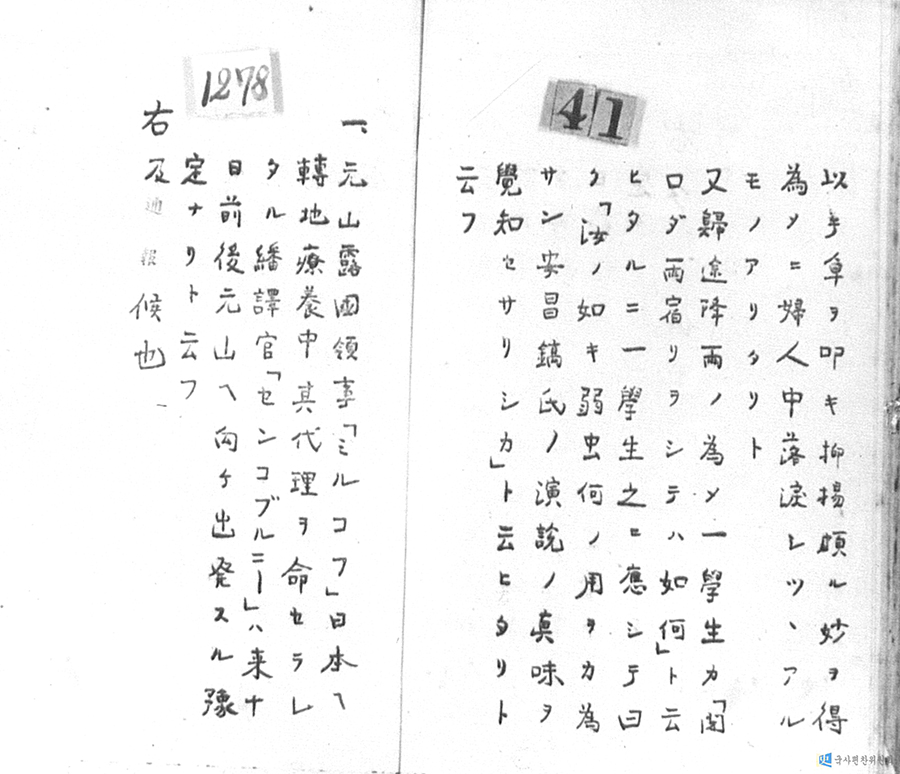 41
以手卓ヲ叩キ抑揚頗ル妙ヲ得
為メニ婦人中落淚シツヽアル
モノアリタリト
又歸途降雨ノ為メ一學生カ「閉
口ダ雨宿リヲシテハ如何」ト云
ヒタルニ一學生之ニ應シテ曰
ク「汝ノ如キ弱虫何ノ用ヲカ為
サン安昌鎬氏ノ演説ノ真味ヲ
覺知セサリシカ」ト云ヒタリト
云フ
1278
一、元山露國領事「ミルコフ」日本ヘ
轉地療養中其代理ヲ命セラレ
タル繙譯官「センコブルニー」ハ来十
日前後元山ヘ向ケ出発スル豫
定ナリト云フ
右及通報候也
국사편찬위